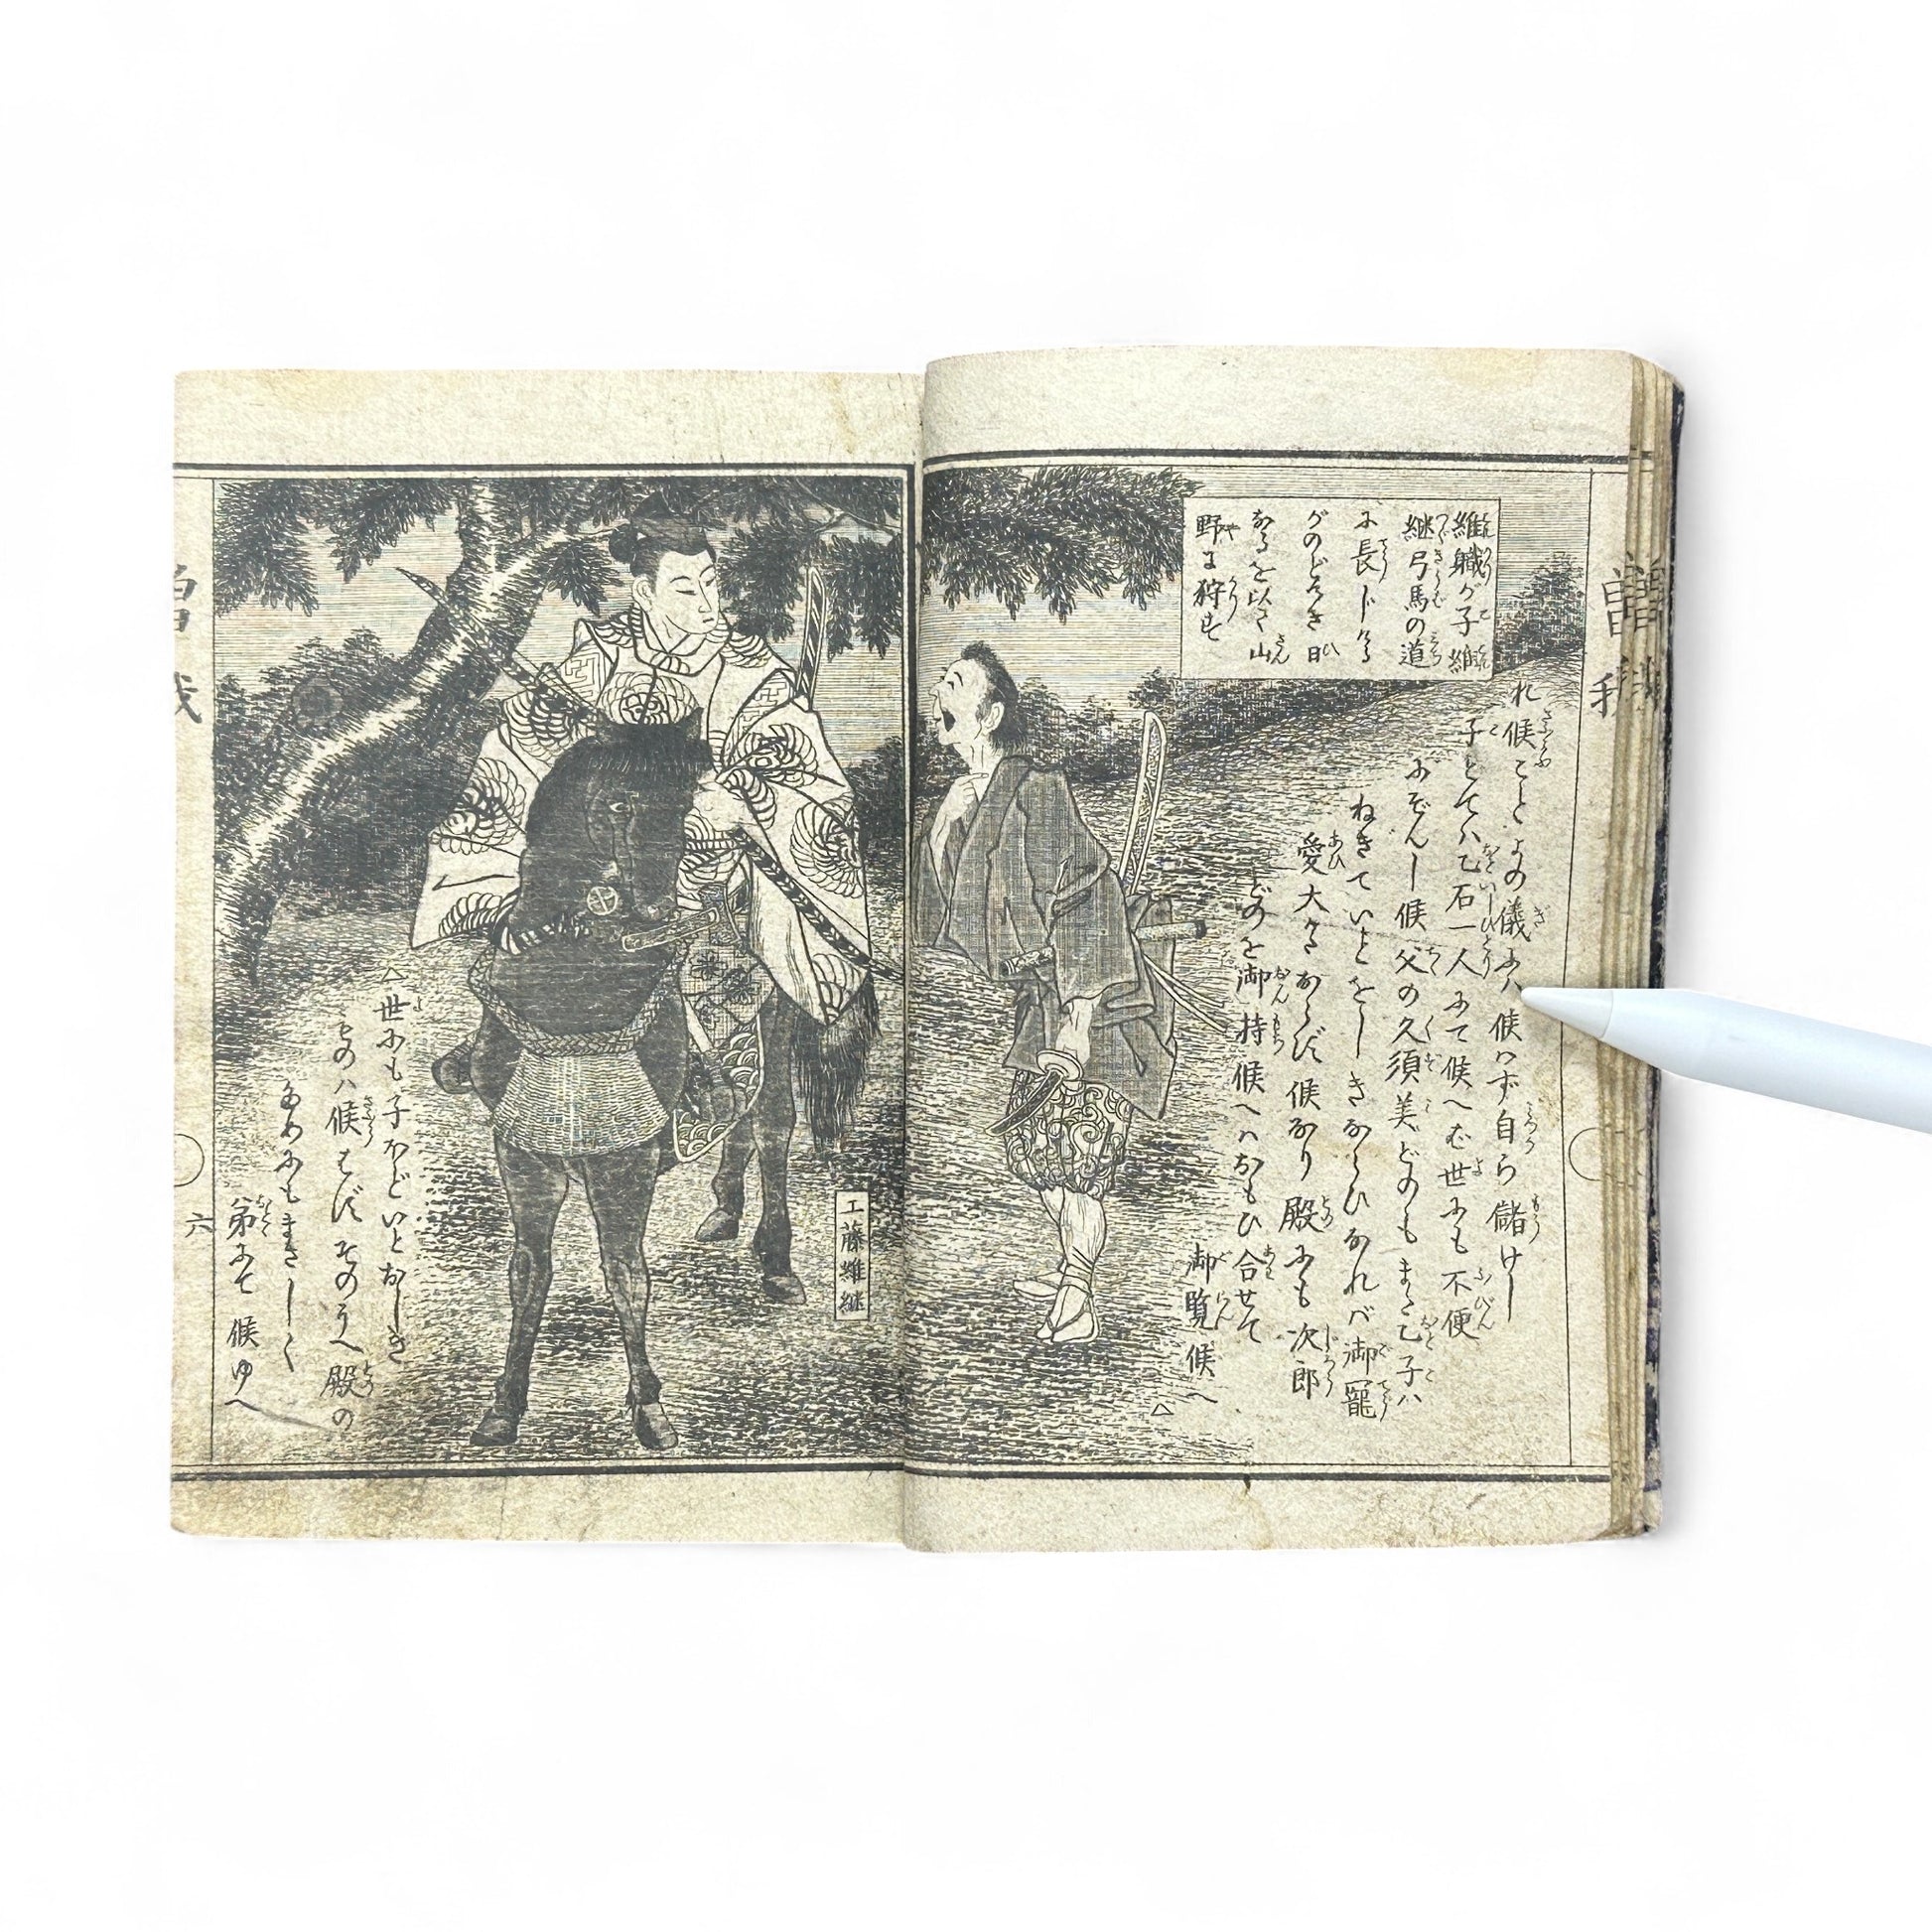 維職が子維
継弓馬の道
に長じける
がのどけき日
なるを以て山
野に狩す
れ候こと よの儀にハ候ハず自ら儲けし
子とてハ乙石一人にて候へバ世にも不便
にぞんし候父の久須美どのもまた乙子ハ
ねぎていとをしきならひなれバ御寵
愛大かたならず候なり殿にも次郎
どのを御持候へハおもひ合せて
御覧候へ
△
△
世にも子ほどいとおしき
ものハ候はずそのうへ殿の
ためにもまさしく
弟にて候ゆへ
工藤維継
曽我
六